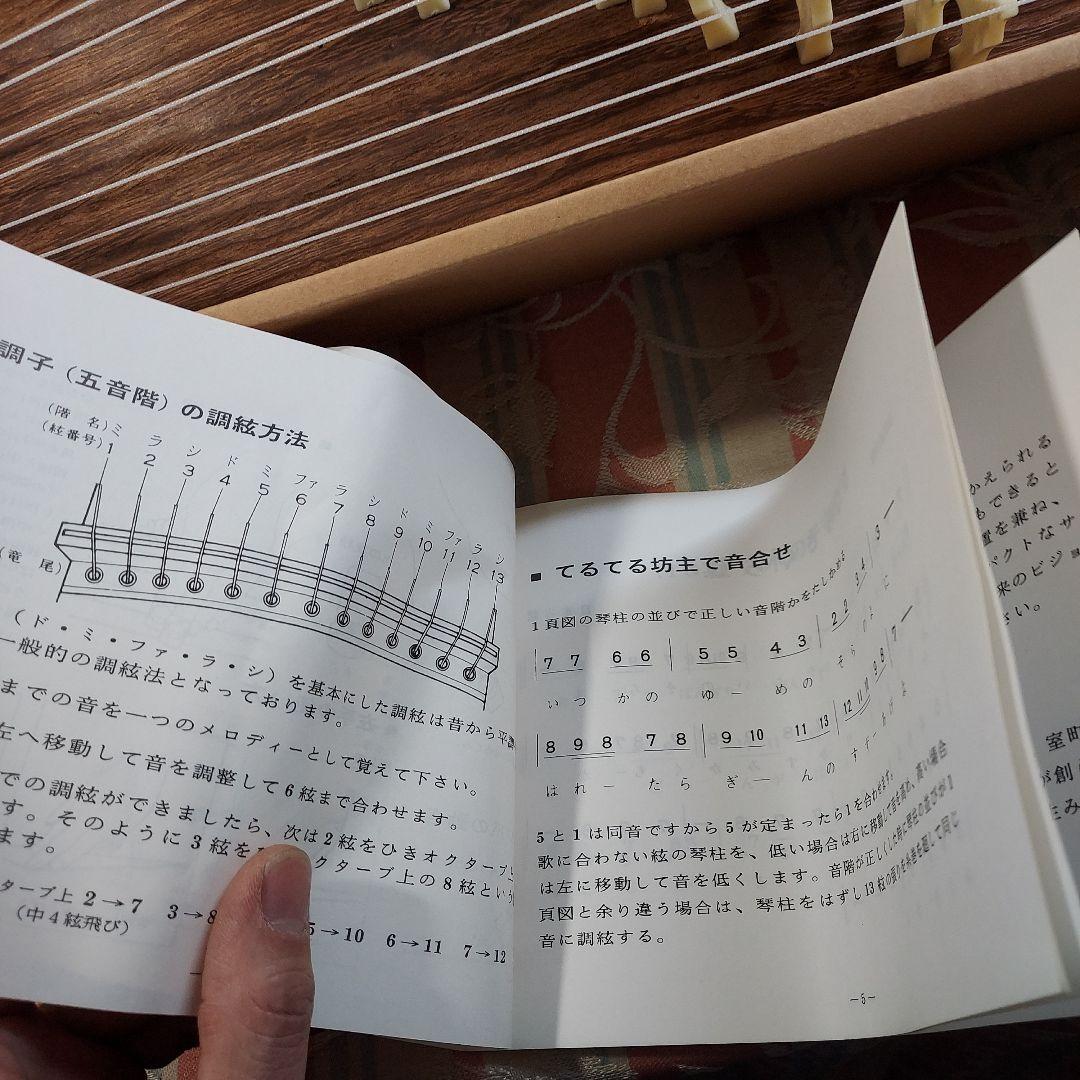 調子（五音階）の調絃方法
（階名）ミ ラ シ ド ミ ファ ラ シ ド ミ ファ ラ シ
（絃番号）1 2 3 4 5 6 7 8 9 10 11 12 13
（竜尾）
（ド・ミ・ファ・ラ・シ）を基本にした調絃は昔から平調
一般的の調絃法となっております。
までの音を一つのメロディーとして覚えて下さい。
左へ移動して音を調整して6絃まで合わせます。
での調絃ができましたら、次は2絃をひきオクターブ上
す。そのように3絃を クターブ上の8絃とい
ます。
ターブ上 2→7 3→8 5→10 6→11 7→12
（中4絃飛び）
■ てるてる坊主で音合せ
1頁図の琴柱の並びで正しい音階かをたしかめる
7 7 6 6 5 5 4 3 2 2 3 4 3 ―
い つ か の ゆ ー め の そ ら の よ に
8 9 8 7 8 9 10 11 13 12 11 10 9 8 7 ―
は れ ー た ら ぎ ー ん の す ず ー あ げ よ
5と1は同音ですから5が定まったら1を合わせます。
歌に合わない絃の琴柱を、低い場合は右に移動して音を高め、高い場合
は左に移動して音を低くします。音階が正しくした時に琴柱の並びが1
頁図と余り違う場合は、琴柱をはずし13絃の張りを糸巻を廻して同じ
音に調絃する。
―5―
かえられる
もできると
を兼ね、
パクトなサ
来のビジ
さい。
室町
が創
生み